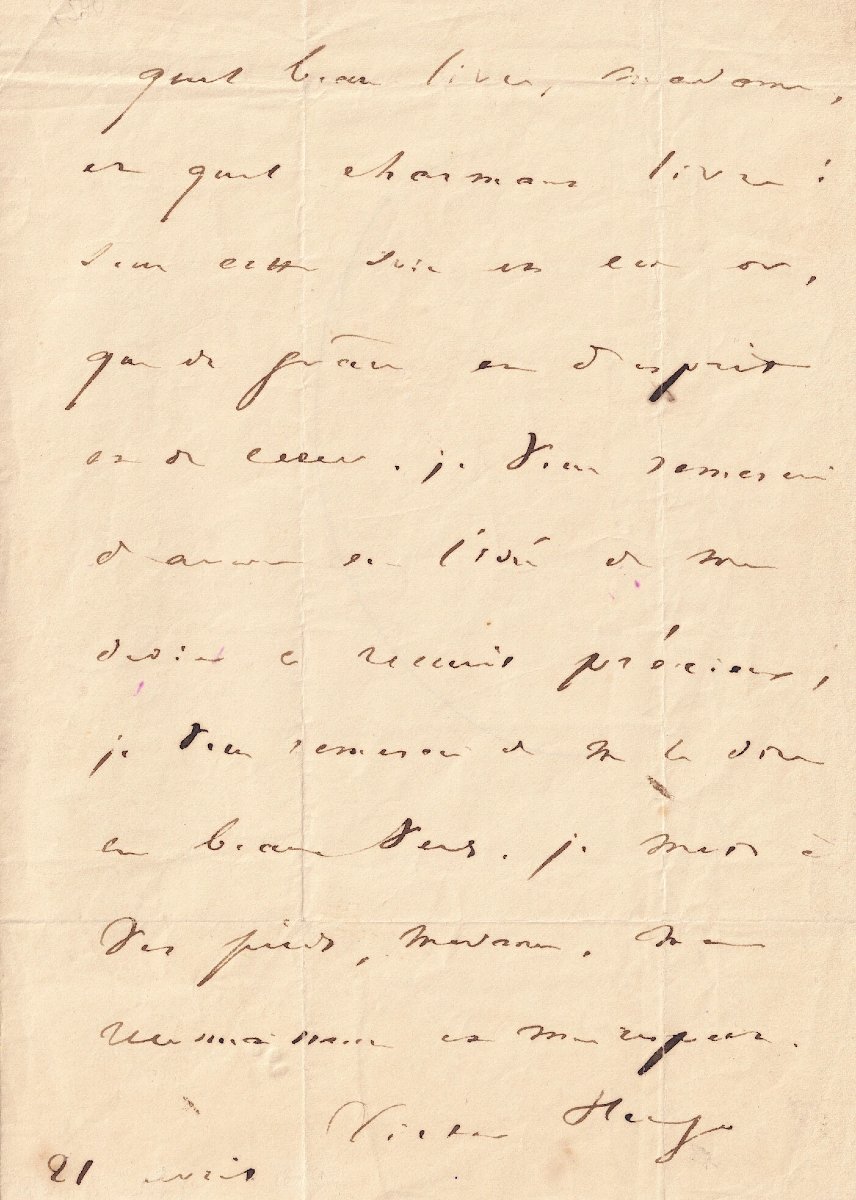 quel beau livre, madame,
et quel charmant livre !
cette soie est en or,
que de grâce et d'esprit
et de cœur. je vous remercie
d'avoir eu l'idée de me
dédier ce recueil précieux ;
je vous remercie de me le dire
en beaux vers. je mets à
vos pieds, madame, ma
reconnaissance et mon respect.
Victor Hugo
21 avril